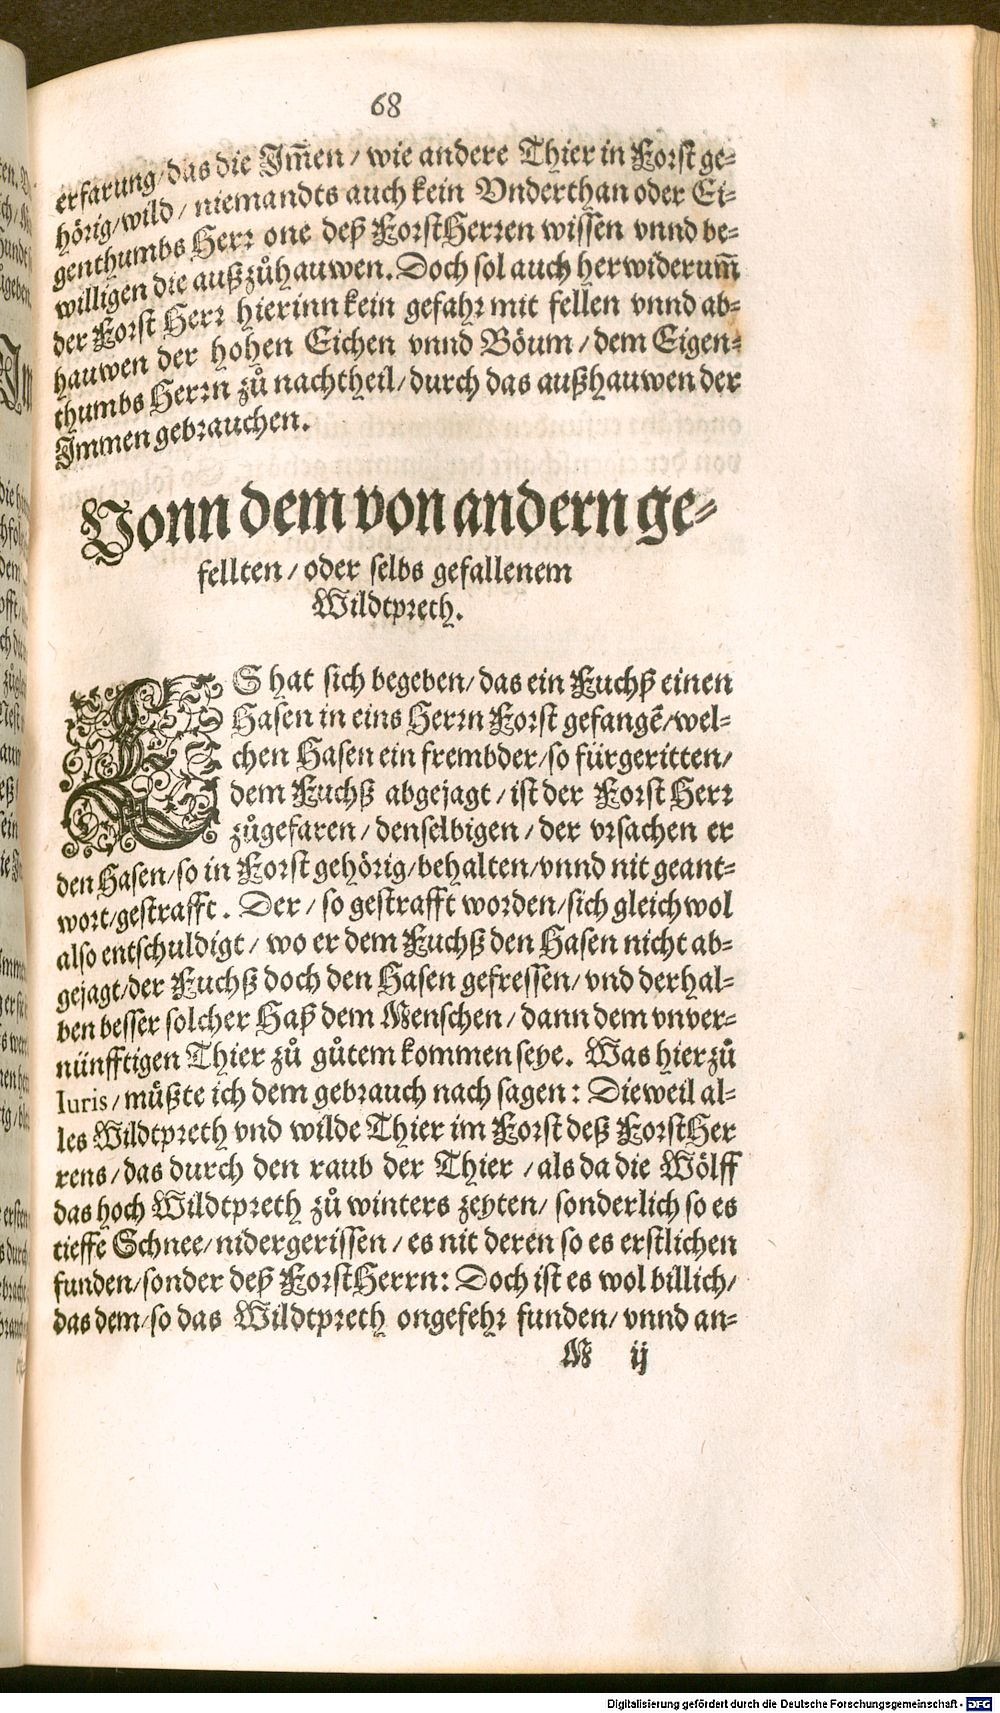 68
erfarung/das die Im̃en/wie andere Thier in Forst ge⸗
hörig/wild/niemandts auch kein Vnderthan oder Ei⸗
genthumbs Herr one deß ForstHerren wissen vnnd be⸗
willigen die außzůhauwen. Doch sol auch herwiderum̃
der Forst Herr hierinn kein gefahr mit fellen vnnd ab⸗
hauwen der hohen Eichen vnnd Böum/dem Eigen⸗
thumbs Herrn zů nachtheil/durch das außhauwen der
Immen gebrauchen.
Vonn dem von andern ge⸗
fellten/oder selbs gefallenem
Wildtpreth.
ES hat sich begeben/das ein Fuchß einen
Hasen in eins Herrn Forst gefangẽ/wel⸗
chen Hasen ein frembder/so fürgeritten/
dem Fuchß abgejagt/ist der Forst Herr
zůgefaren/denselbigen/der vrsachen er
den Hasen/so in Forst gehörig/behalten/vnnd nit geant⸗
wort/gestrafft. Der/so gestrafft worden/sich gleichwol
also entschuldigt/wo er dem Fuchß den Hasen nicht ab⸗
gejagt/der Fuchß doch den Hasen gefressen/vnd derhal⸗
ben besser solcher Haß dem Menschen/dann dem vnver⸗
nünfftigen Thier zů gůtem kommen seye. Was hierzů
Iuris/müßte ich dem gebrauch nach sagen: Dieweil al⸗
les Wildtpreth vnd wilde Thier im Forst deß ForstHer
rens/das durch den raub der Thier/als da die Wölff
das hoch Wildtpreth zů winters zeyten/sonderlich so es
tieffe Schnee/nidergerissen/es nit deren so es erstlichen
funden/sonder deß ForstHerrn: Doch ist es wol billich/
das dem/so das Wildtpreth ongefehr funden/vnnd an⸗
M ij
Digitalisierung gefördert durch die Deutsche Forschungsgemeinschaft - DFG